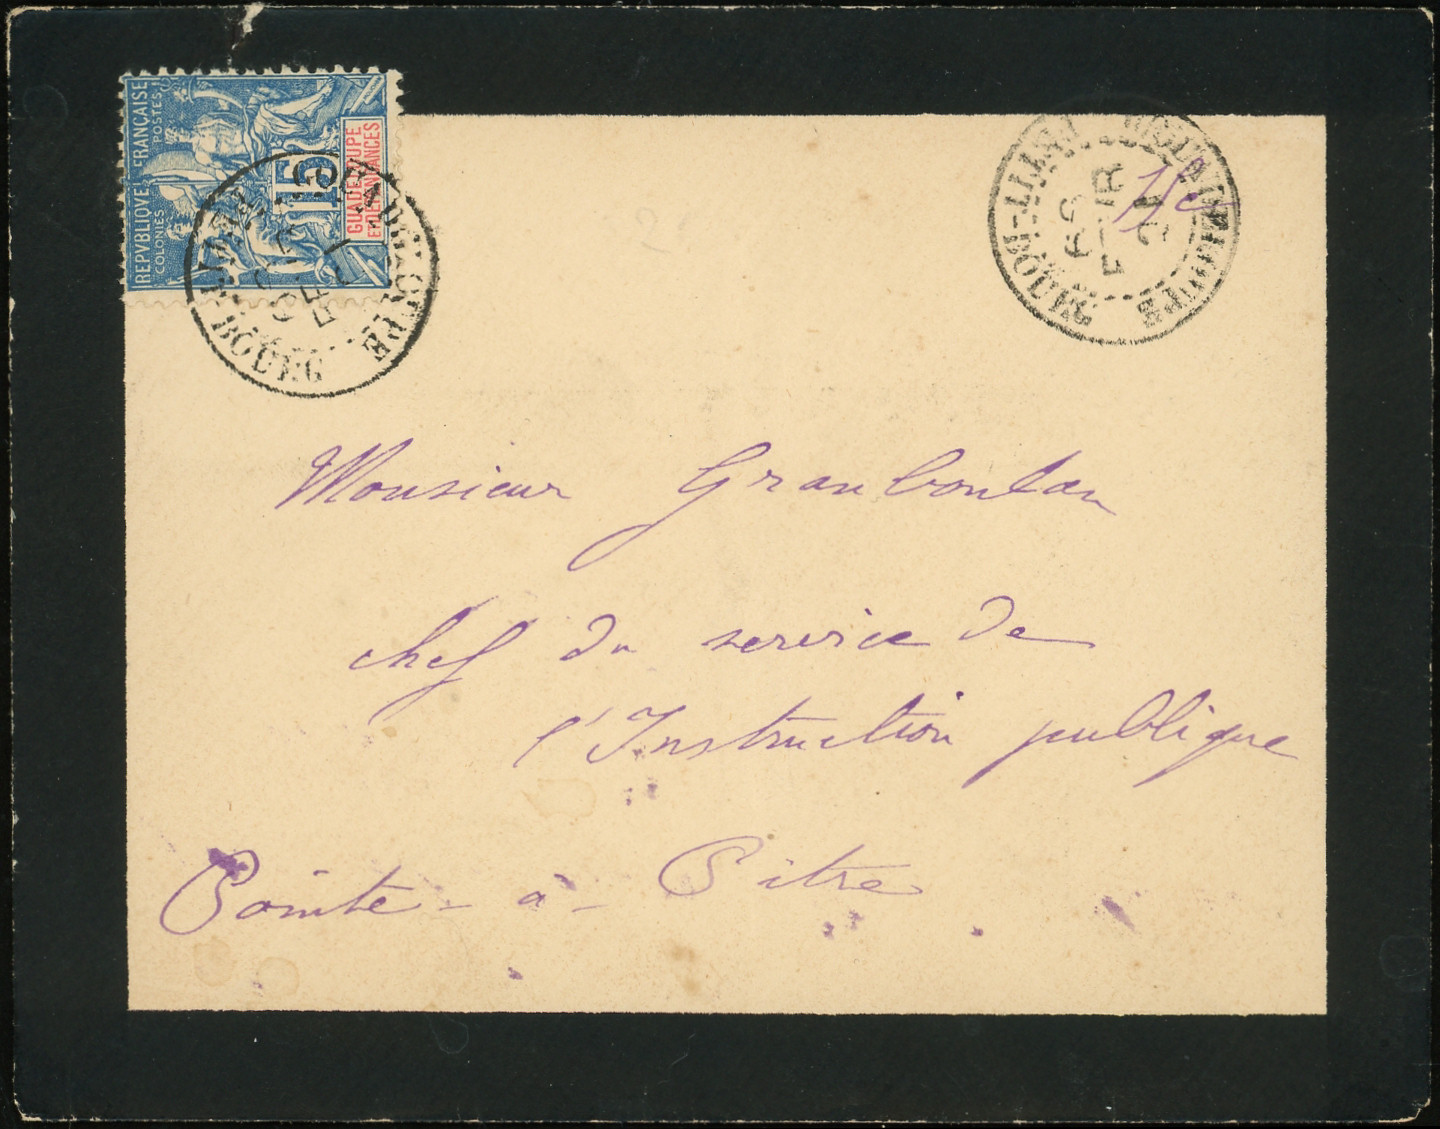 REPVBLIQUE FRANÇAISE
COLONIES POSTES
15
GUADELOUPE
ET DEPENDANCES
GUADELOUPE
PETIT-BOURG
PETIT-BOURG
Monsieur Grauboulan
chef du service de
l'Instruction publique
Pointe-à-Pitre